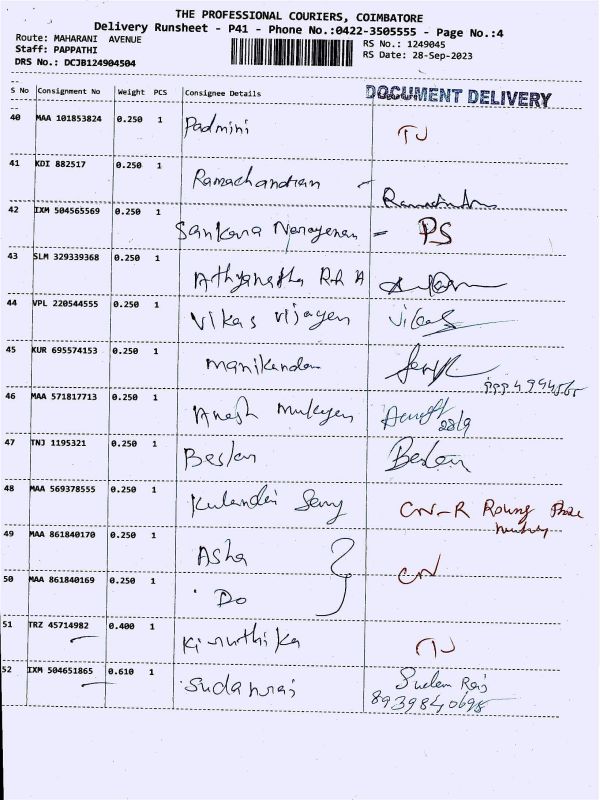 THE PROFESSIONAL COURIERS, COIMBATORE
Delivery Runsheet - P41 - Phone No.:0422-3505555 - Page No.:4
Route: MAHARANI AVENUE
Staff: PAPPATHI
DRS No.: DCJB124904504
RS No.: 1249045
RS Date: 28-Sep-2023
DOCUMENT DELIVERY
S No Consignment No Weight PCS Consignee Details
40 MAA 101853824 0.250 1 Padmini
41 KDI 882517 0.250 1 Ramachandran -
42 IXM 504565569 0.250 1 Sankara Narayanan - PS
43 SLM 329339368 0.250 1
44 VPL 220544555 0.250 1 Vikas Vijayen
45 KUR 695574153 0.250 1 Manikandan
46 MAA 571817713 0.250 1 28/9
47 TNJ 1195321 0.250 1 Beslan Beslan
48 MAA 569378555 0.250 1 CN-R
49 MAA 861840170 0.250 1 Asha
CN
50 MAA 861840169 0.250 1 Do
51 TRZ 45714982 0.400 1 Kiruthika
52 IXM 504651865 0.610 1 Sudanraj
8939840698